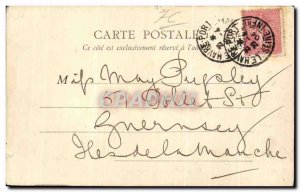 CARTE POSTALE
Ce côté est exclusivement réservé à l'adresse
LE HAVRE PORT
LE HAVRE
Miss May Pugsley
Pollet St
Guernsey
Iles de la Manche